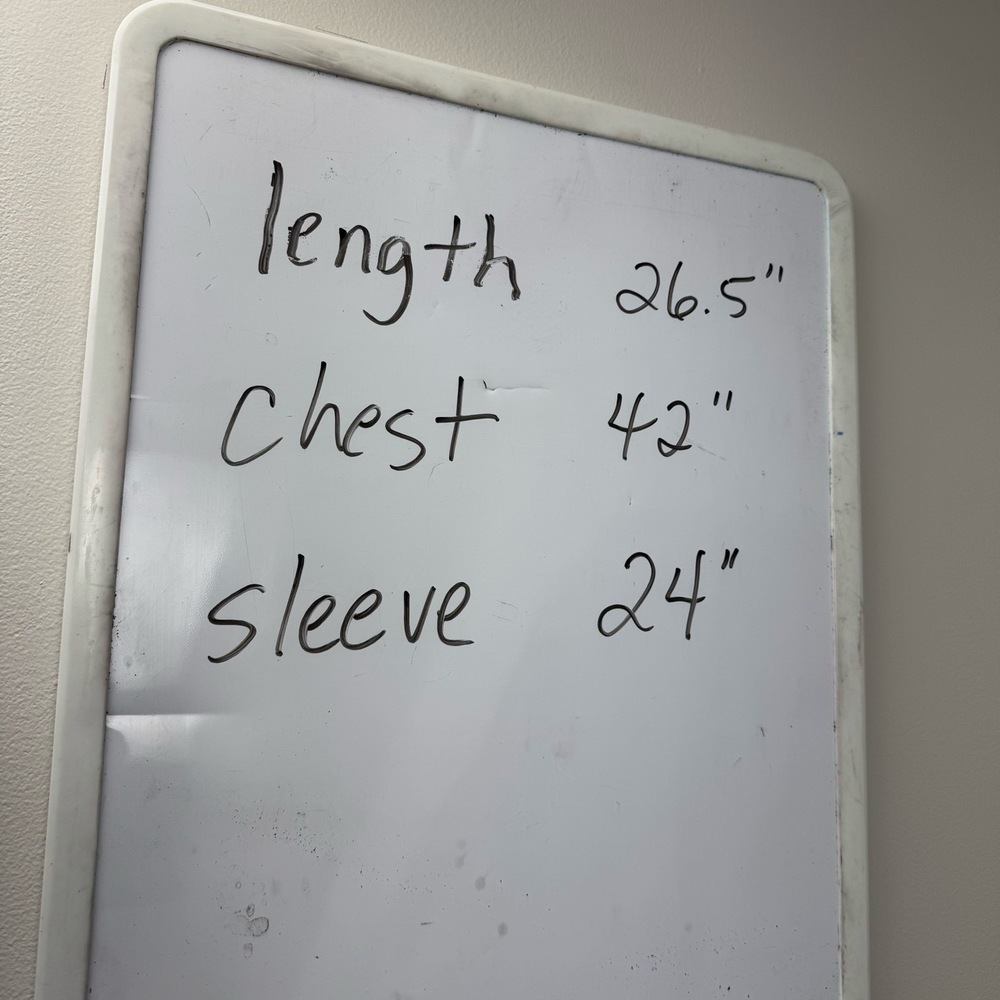 length 26.5"
chest 42"
sleeve 24"